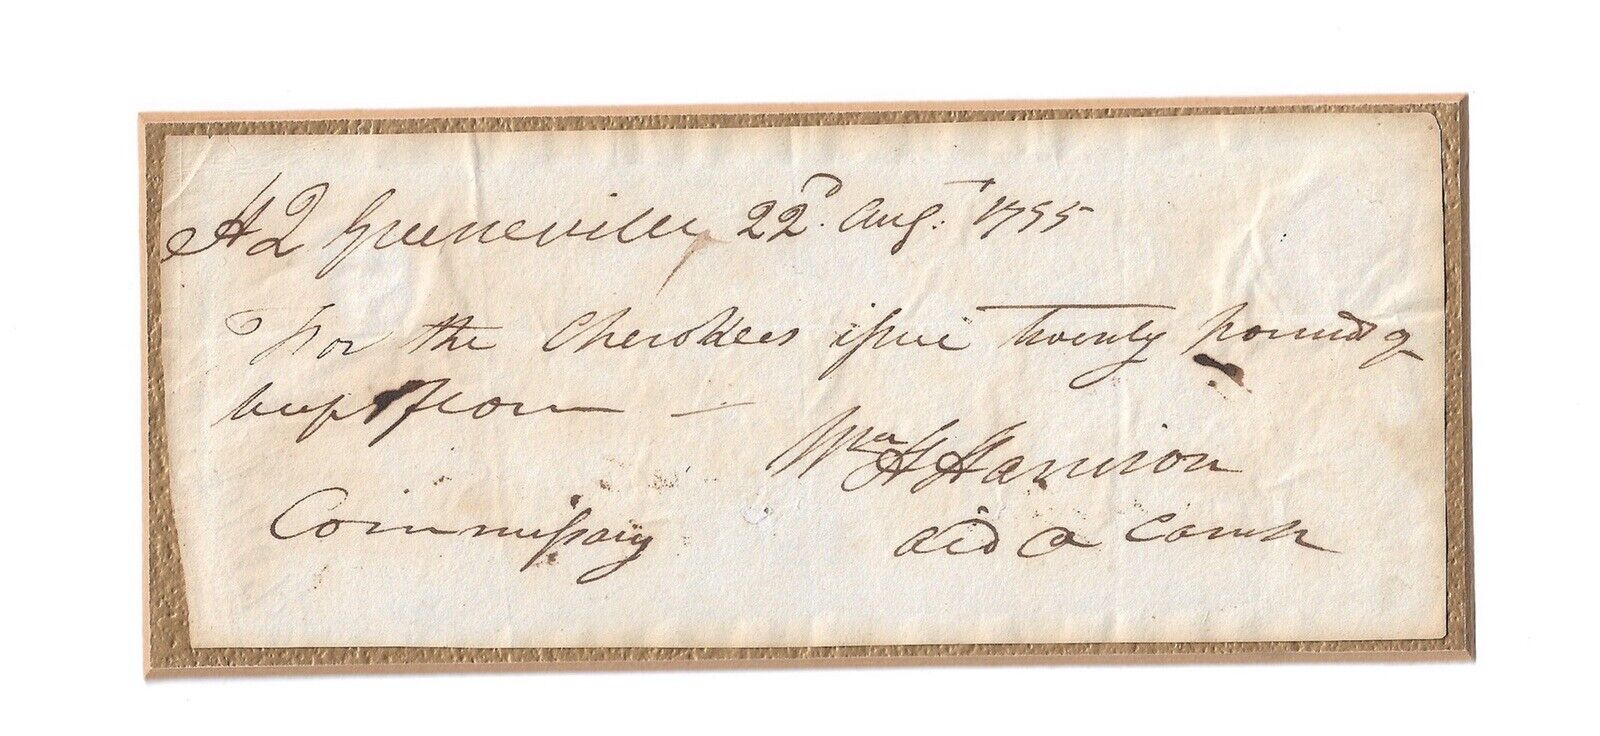 HQ Greeneville, 22d. Aug. 1795
For the Cherokees issue twenty pounds of
beef & flour —
Wm H Harrison
Commissary aid a camp